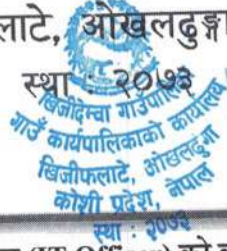 लाटे, ओखलढुङ्गा
स्था : २०७३
खिजीदेम्बा गाउँपालिका
गाउँ कार्यपालिकाको कार्यालय
खिजीफलाटे, ओखलढुंगा
कोशी प्रदेश, नेपाल
स्था : २०७३